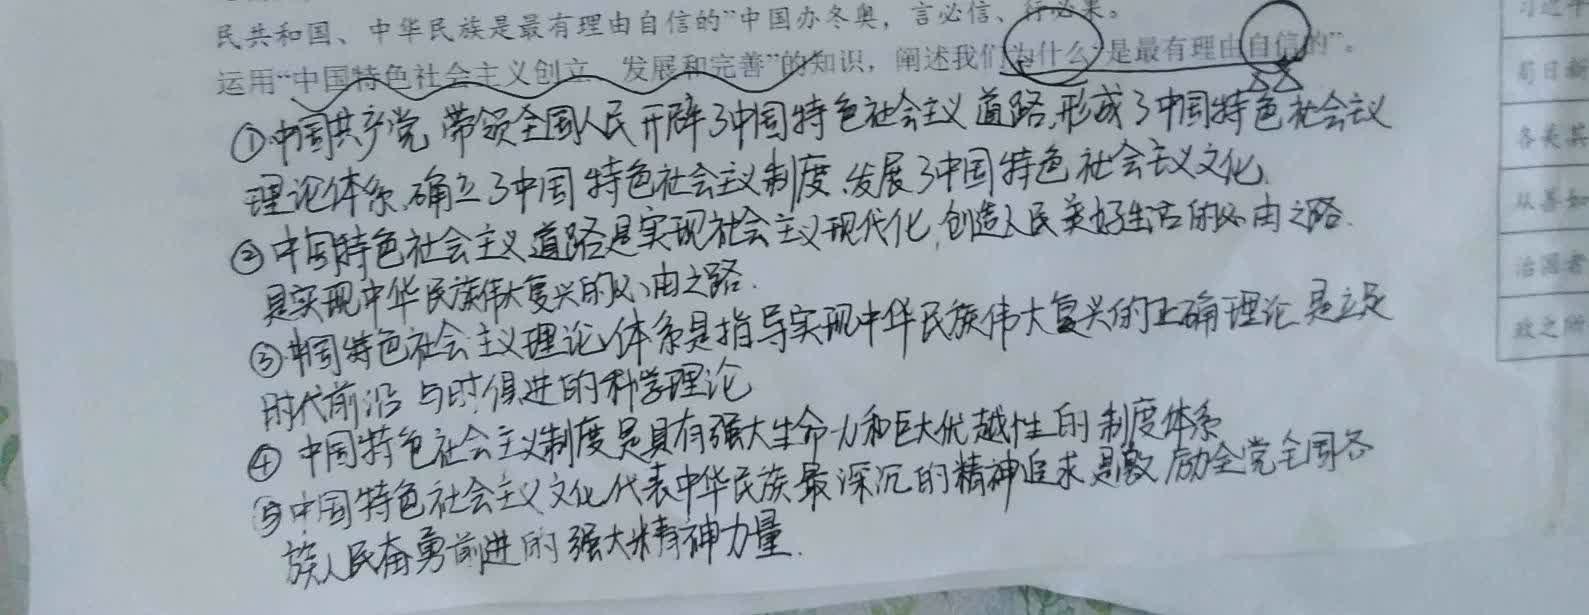 民共和国、中华民族是最有理由自信的”中国办冬奥，言必信、行必果。
运用“中国特色社会主义创立、发展和完善”的知识，阐述我们“为什么”是最有理由自信的”。
①中国共产党带领全国人民开辟了中国特色社会主义道路,形成了中国特色社会主义
理论体系,确立了中国特色社会主义制度,发展了中国特色社会主义文化.
②中国特色社会主义道路是实现社会主义现代化,创造人民美好生活的必由之路.
是实现中华民族伟大复兴的必由之路.
③中国特色社会主义理论体系是指导实现中华民族伟大复兴的正确理论是立足
时代前沿与时俱进的科学理论
④中国特色社会主义制度是具有强大生命力和巨大优越性的制度体系
⑤中国特色社会主义文化代表中华民族最深沉的精神追求是激励全党全国各
族人民奋勇前进的强大精神力量.
习近平
苟日新
各美其
从善如
治国者
政之所